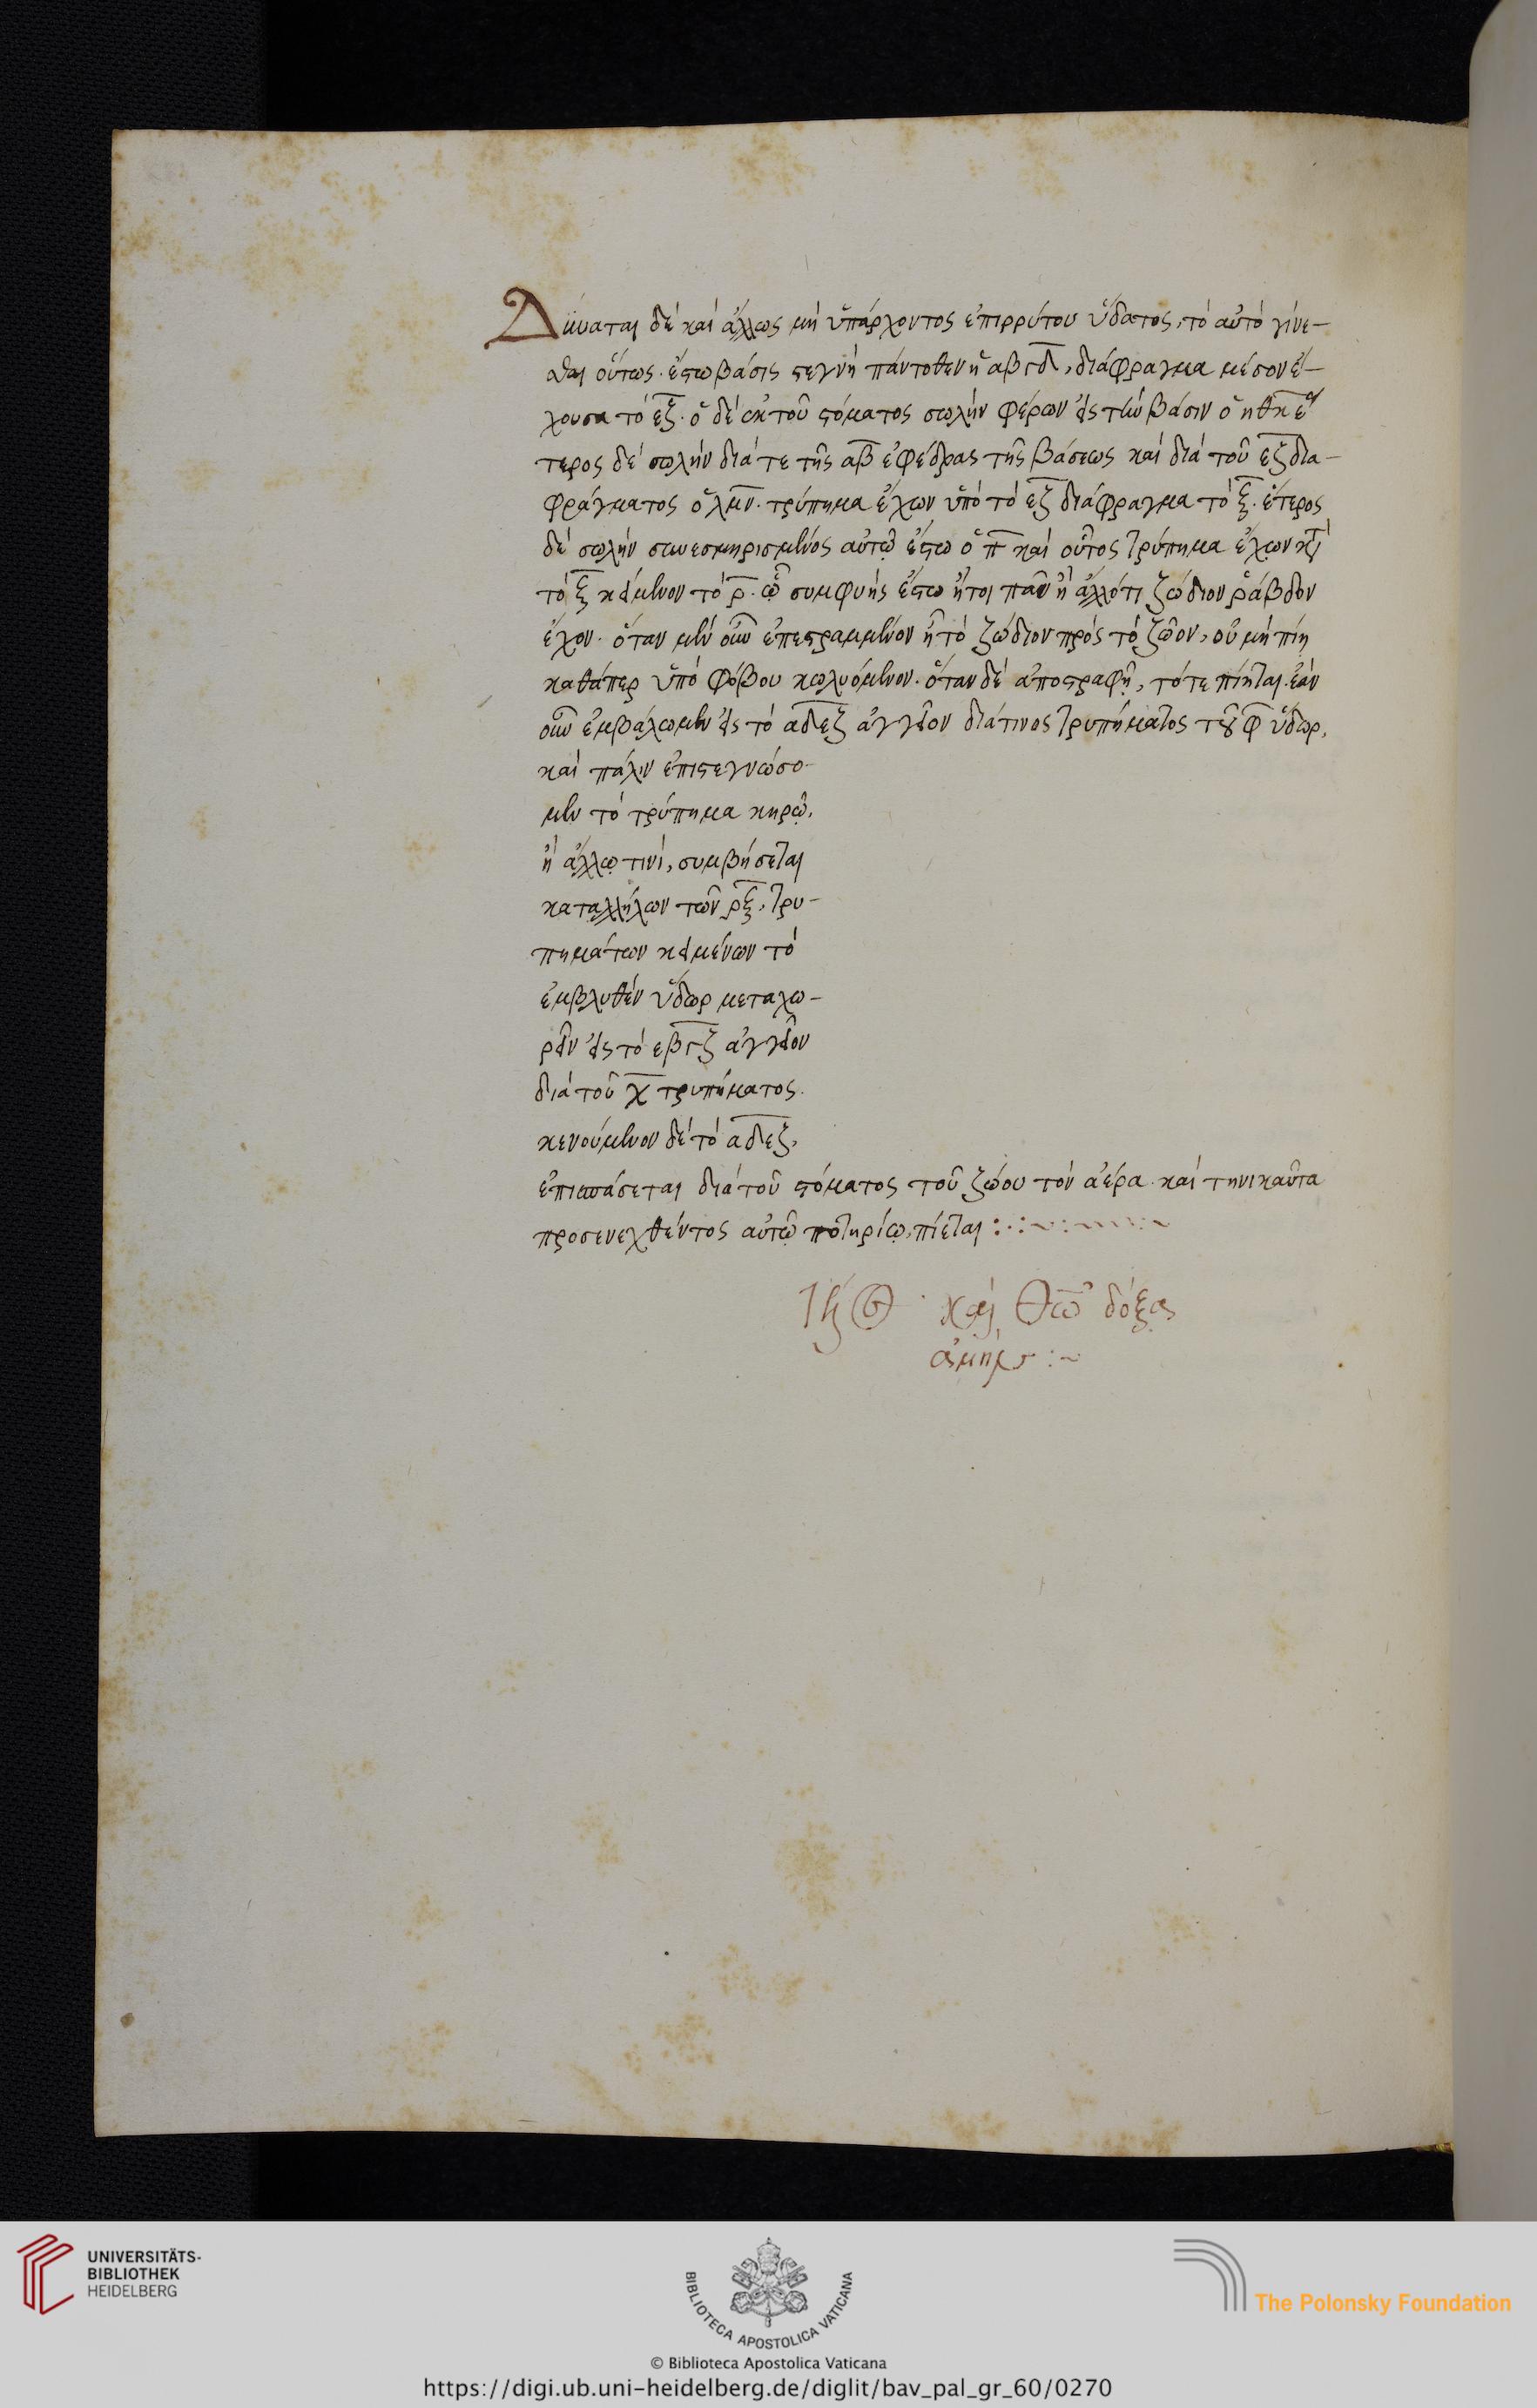 Δύναται δὲ καὶ ἄλλως μὴ ὑπάρχοντος ἐπιρρύτου ὕδατος, τὸ αὐτὸ γίνε-
σθαι οὕτως. ἔστω βάσις στεγνὴ πάντοθεν ἡ αβγδ, διάφραγμα μέσον ἔ-
χουσα τὸ εζ. ὁ δὲ ἐκ τοῦ στόματος σωλὴν φέρων εἰς τὴν βάσιν ὁ ηθκ ἕ
τερος δὲ σωλὴν διά τε τῆς αβ ἐφέδρας τῆς βάσεως καὶ διὰ τοῦ εζ δια-
φράγματος ὁ λμν. τρύπημα ἔχων ὑπὸ τὸ εζ διάφραγμα τὸ ξ. ἕτερος
δὲ σωλὴν συνεσμηρισμένος αὐτῷ ἔστω ὁ π καὶ οὗτος τρύπημα ἔχων κατὰ
τὸ ξ κείμενον τὸ ρ. ᾧ συμφυὴς ἔστω ἤτοι πᾶν ἢ ἄλλό τι ζώδιον ῥάβδον
ἔχον. ὅταν μὲν οὖν ἐπεστραμμένον ἦ τὸ ζώδιον πρὸς τὸ ζῶον, οὐ μὴ πίη
καθάπερ ὑπὸ φόβου κωλυόμενον. ὅταν δὲ ἀποστραφῆ, τότε πίηται. ἐὰν
οὖν ἐμβάλωμεν εἰς τὸ αδεζ ἀγγεῖον διά τινος τρυπήματος τοῦ φ ὕδωρ,
καὶ πάλιν ἐπιστεγνώσο-
μεν τὸ τρύπημα κηρῷ,
ἢ ἄλλῳ τινὶ, συμβήσεται
καταλλήλων τῶν ρξ, τρυ-
πημάτων κειμένων τὸ
ἐμβλυθὲν ὕδωρ μεταχω-
ρεῖν εἰς τὸ εβγζ ἀγγεῖον
διὰ τοῦ χ τρυπήματος.
κενούμενον δὲ τὸ αδεζ,
ἐπισπάσεται διὰ τοῦ στόματος τοῦ ζώου τὸν ἀέρα. καὶ τηνικαῦτα
προσενεχθέντος αὐτῷ ποτηρίῳ, πίεται
καὶ Θῶ δόξα
ἀμήν
UNIVERSITÄTS-
BIBLIOTHEK
HEIDELBERG
BIBLIOTECA APOSTOLICA VATICANA
The Polonsky Foundation
© Biblioteca Apostolica Vaticana
https://digi.ub.uni-heidelberg.de/diglit/bav_pal_gr_60/0270